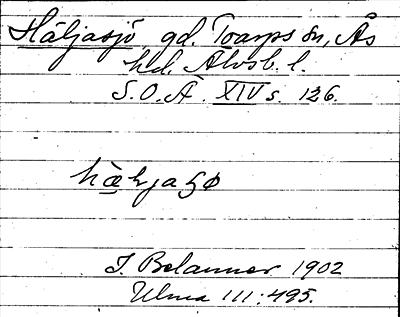 Häljasjö gd. Toarps sn, Ås
hd. Älvsb. l.
S.O.Ä. XIV s. 126.
hæljaʃø
J. Belanner 1902
Ulma 111:495.